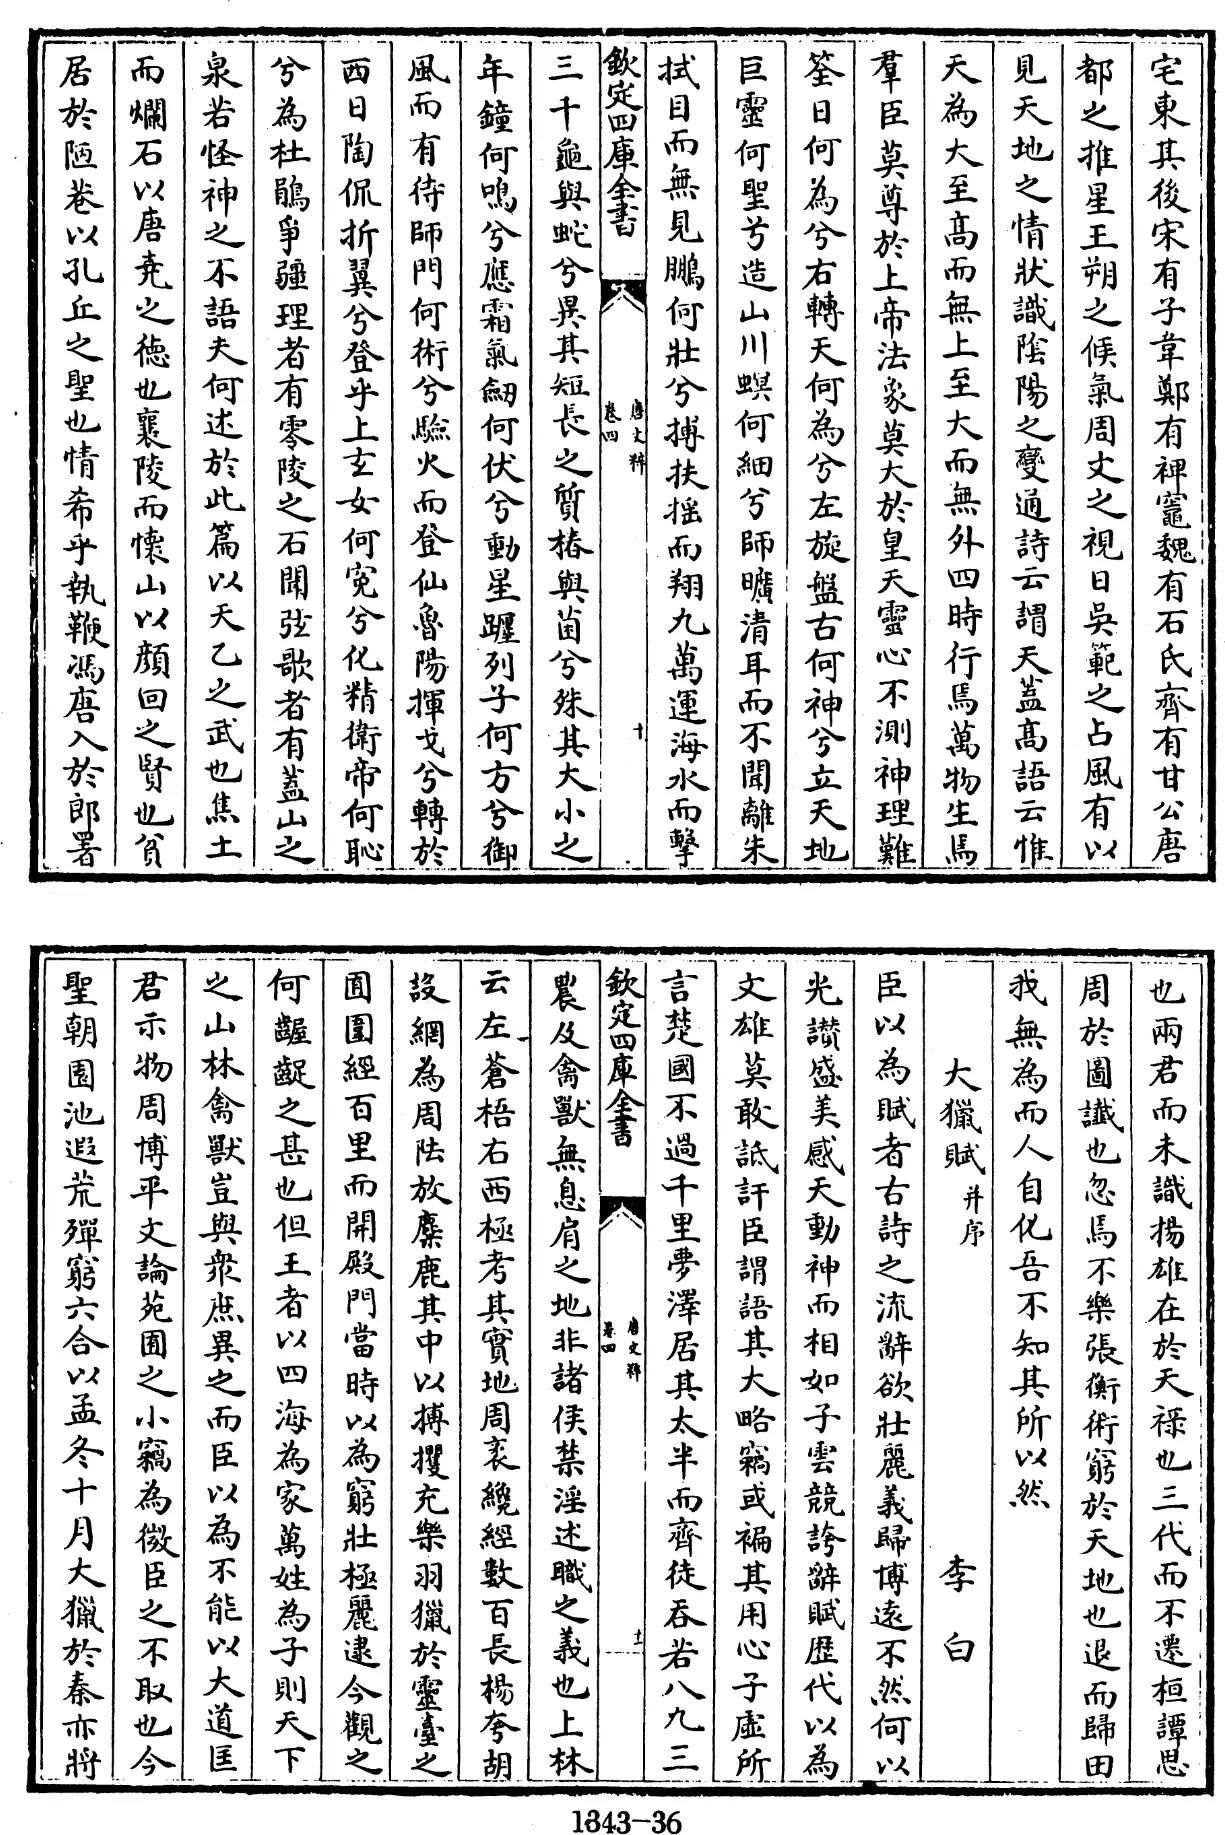 宅東其後宋有子韋鄭有裨竈魏有石氏齊有甘公唐
都之推星王朔之候氣周文之視日吳範之占風有以
見天地之情狀識陰陽之變通詩云謂天蓋髙語云惟
天為大至髙而無上至大而無外四時行焉萬物生焉
羣臣莫尊於上帝法象莫大於皇天靈心不測神理難
筌日何為兮右轉天何為兮左旋盤古何神兮立天地
巨靈何聖兮造山川螟何細兮師曠清耳而不聞離朱
拭目而無見鵬何壯兮搏扶搖而翔九萬運海水而擊
欽定四庫全書
唐文粹
卷四
十
三千龜與蛇兮異其短長之質椿與菌兮殊其大小之
年鐘何鳴兮應霜氣劒何伏兮動星躔列子何方兮御
風而有待師門何術兮驗火而登仙魯陽揮戈兮轉於
西日陶侃折翼兮登乎上玄女何寃兮化精衛帝何恥
兮為杜鵑爭疆理者有零陵之石聞弦歌者有蓋山之
泉若怪神之不語夫何述於此篇以天乙之武也焦土
而爛石以唐堯之德也襄陵而懷山以顔回之賢也貧
居於陋巷以孔丘之聖也情希乎執鞭馮唐入於郎署
也兩君而未識揚雄在於天祿也三代而不遷桓譚思
周於圖讖也忽焉不樂張衡術窮於天地也退而歸田
我無為而人自化吾不知其所以然
大獵賦并序 李白
臣以為賦者古詩之流辭欲壯麗義歸博遠不然何以
光讚盛美感天動神而相如子雲競誇辭賦歷代以為
文雄莫敢詆訐臣謂語其大略竊或褊其用心子虛所
言楚國不過千里夢澤居其太半而齊徒吞若八九三
欽定四庫全書
唐文粹
卷四
十一
農及禽獸無息肩之地非諸侯禁淫述職之義也上林
云左蒼梧右西極考其實地周袤纔經數百長楊夸胡
設網為周阹放麋鹿其中以搏攫充樂羽獵於靈臺之
囿圍經百里而開殿門當時以為窮壯極麗逮今觀之
何齷齪之甚也但王者以四海為家萬姓為子則天下
之山林禽獸豈與衆庶異之而臣以為不能以大道匡
君示物周博平文論苑囿之小竊為微臣之不取也今
聖朝園池遐荒殫窮六合以孟冬十月大獵於秦亦將
1343-36